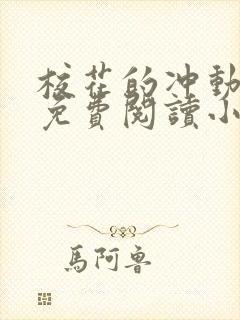 校花的冲動
免費閱讀小
馬阿魯